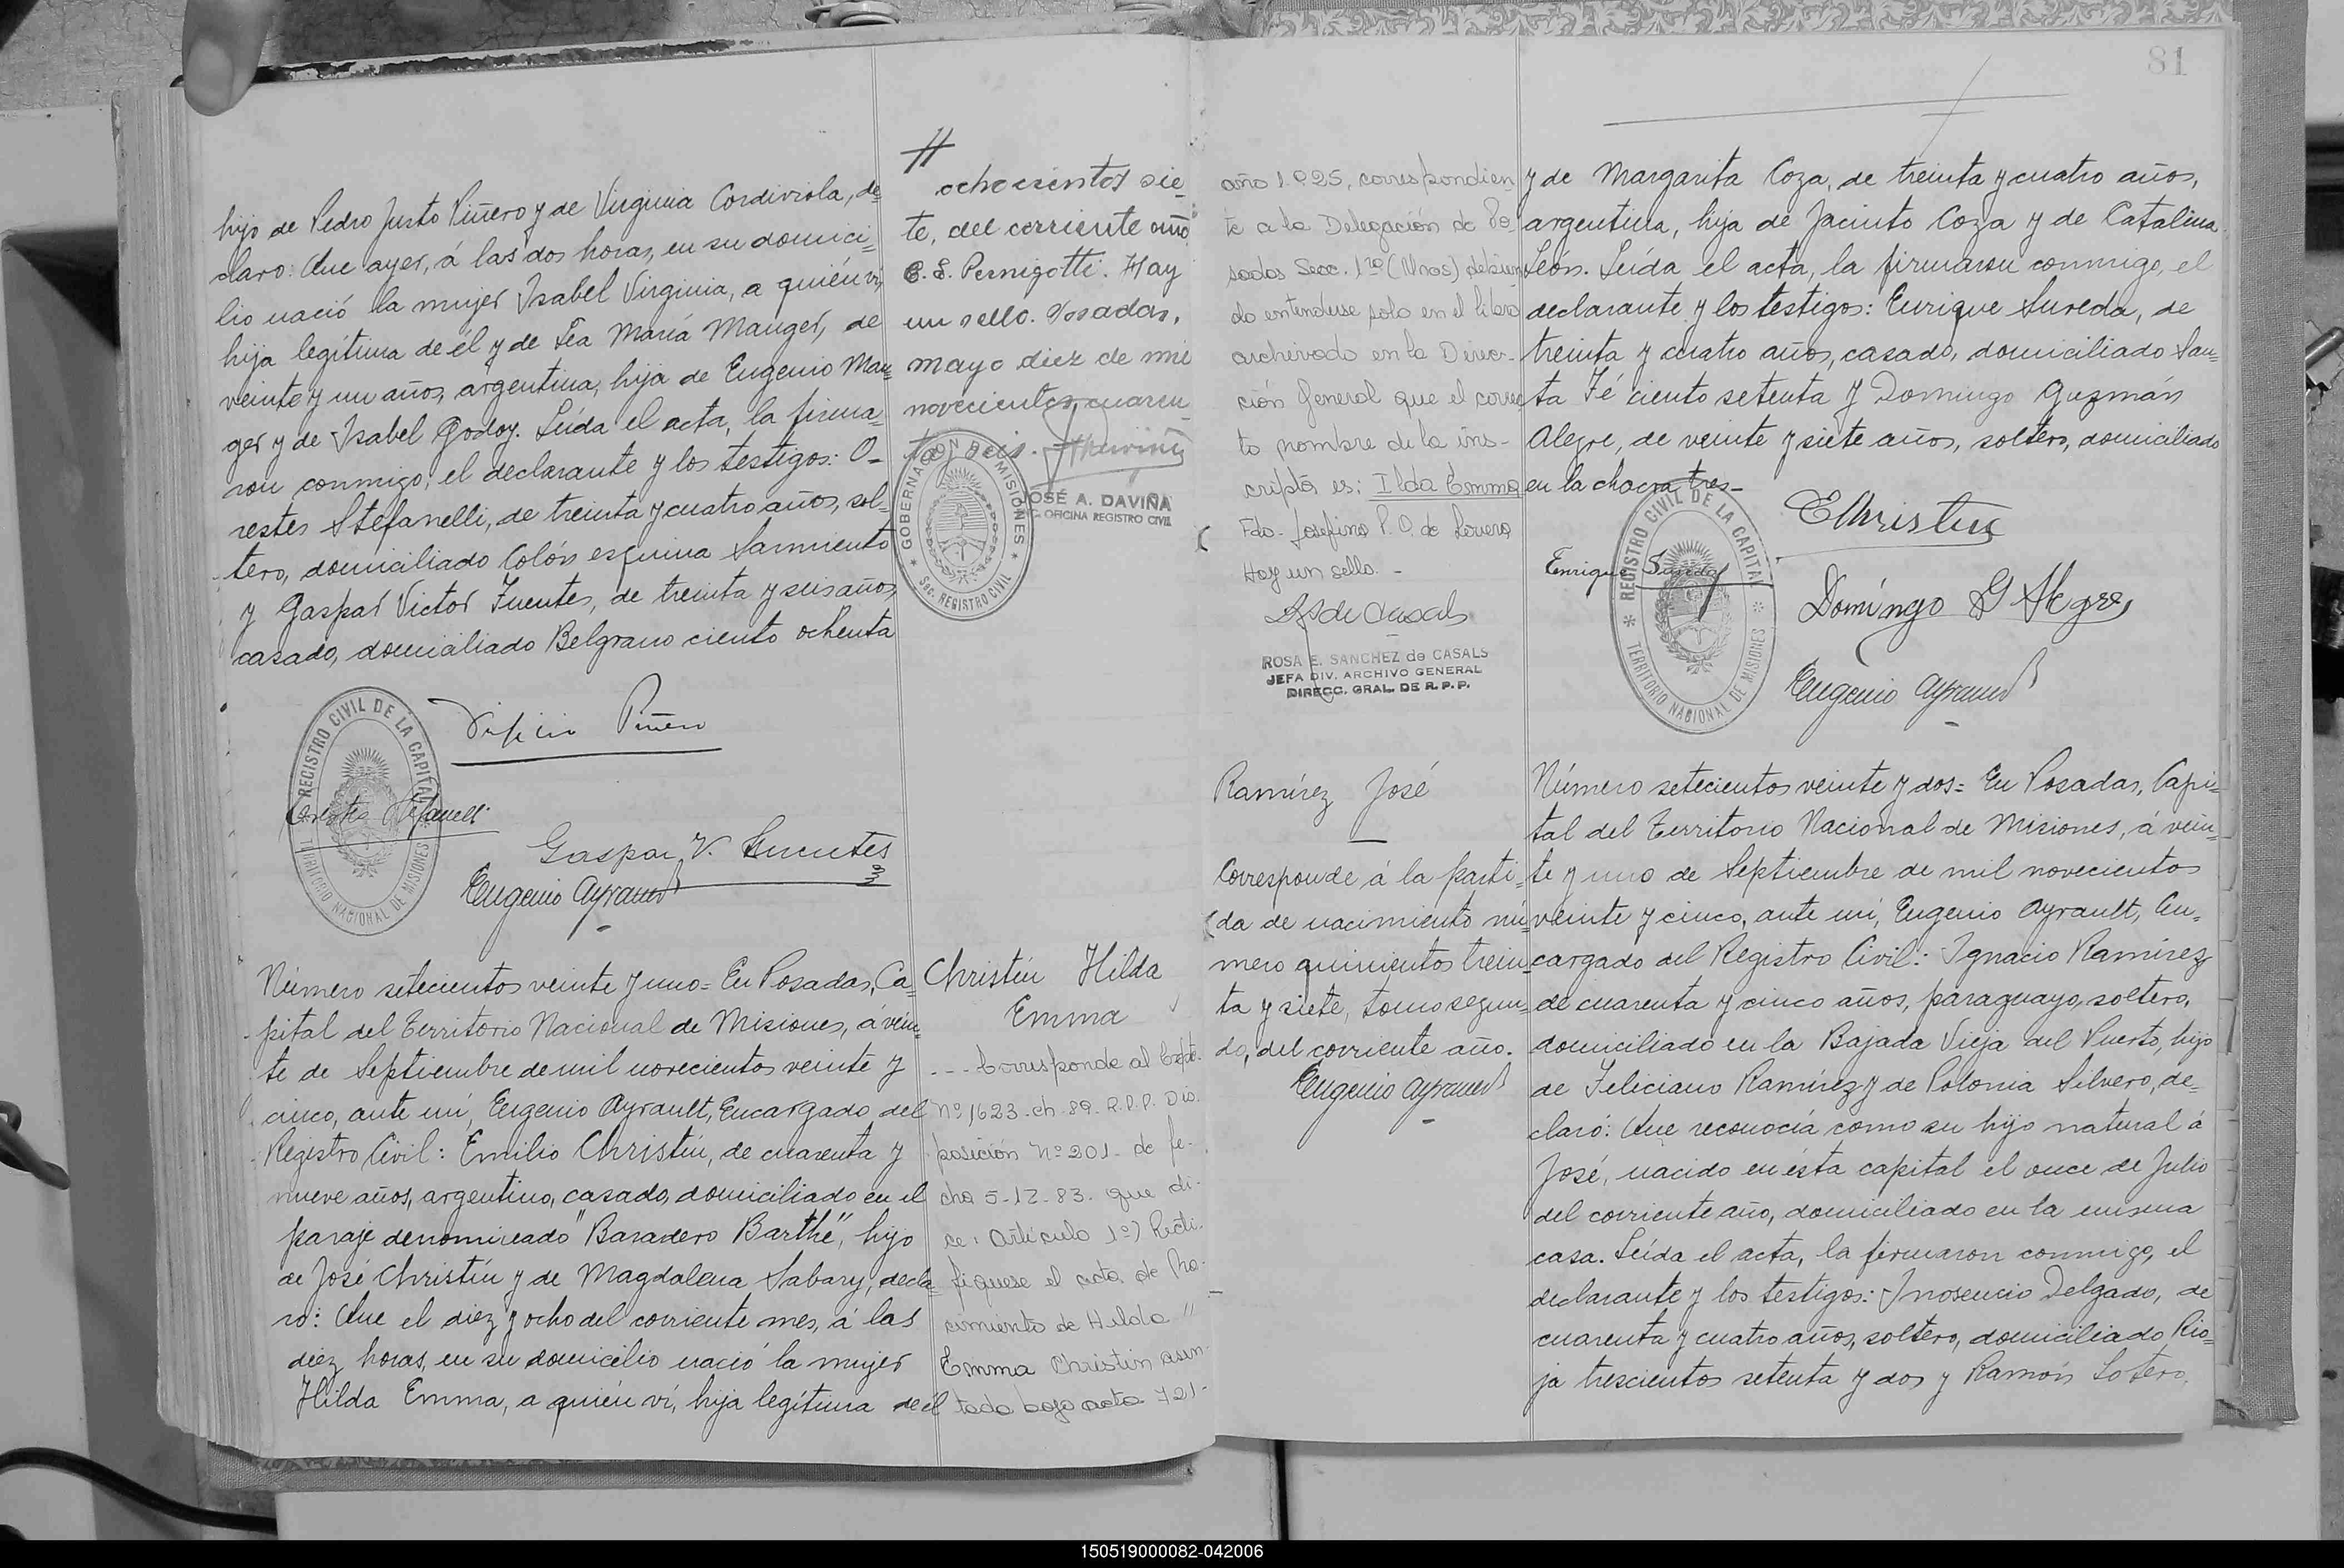 hijo de Pedro Justo Piñero y de Virginia Cordiviola, de=
claro: Que ayer, á las dos horas, en su domici=
lio nació la mujer Isabel Virginia, a quién ví,
hija legítima de él y de Fea María Mauger, de
veinte y un años, argentina, hija de Eugenio Mau=
ger y de Isabel Godoy. Leída el acta, la firma=
ron conmigo, el declarante y los testigos: O=
restes Stefanelli, de treinta y cuatro años, sol=
tero, domiciliado Colón esquina Sarmiento
y Gaspar Victor Fuentes, de treinta y seis años
casado, domiciliado Belgrano ciento ochenta
REGISTRO CIVIL DE LA CAPITAL
TERRITORIO NACIONAL DE MISIONES
Piñero
Orestes Stefanelli
Gaspar V. Fuentes
Eugenio Ayrault
Número setecientos veinte y uno= En Posadas, Ca=
pital del Territorio Nacional de Misiones, á vein=
te de Septiembre de mil novecientos veinte y
cinco, ante mí, Eugenio Ayrault, Encargado del
Registro Civil: Emilio Christín, de cuarenta y
nueve años, argentino, casado, domiciliado en el
paraje denominado "Baradero Barthé", hijo
de José Christín y de Magdalena Sabary, decla=
ró: Que el diez y ocho del corriente mes, á las
diez horas, en su domicilio nació la mujer
Hilda Emma, a quién ví, hija legítima de él
ochocientos sie=
te, del corriente año
C. S. Pernigotti. Hay
un sello. Posadas,
mayo diez de mil
novecientos cuaren=
ta y seis.
GOBERNACION DE MISIONES
Sec. REGISTRO CIVIL
JOSÉ A. DAVIÑA
OFICINA REGISTRO CIVIL
Christín Hilda
Emma
--- Corresponde al Expte.
Nº 1623-ch-89-R.P.P. Dis.
posición Nº 201- de fe-
cha 5-12-83. que di-
ce: Artículo 1º) Recti-
fíquese el acta de Na-
cimiento de Hilda
Emma Christin asen-
tada bajo acta 721-
81
año 1.925, correspondien
te a la Delegación de Po-
sadas Secc. 1ra (Vnos) debien
do entenderse solo en el libro
archivado en la Direc-
ción General que el correc
to nombre de la ins-
cripta es: Ilda Emma
Fdo. Josefina P. D. de Lovera
Hay un sello. -
ROSA E. SANCHEZ de CASALS
JEFA DIV. ARCHIVO GENERAL
DIRECC. GRAL. DE R.P.P.
y de Margarita Coza, de treinta y cuatro años,
argentina, hija de Jacinto Coza y de Catalina
León. Leída el acta, la firmaron conmigo, el
declarante y los testigos: Enrique Sureda, de
treinta y cuatro años, casado, domiciliado San=
ta Fé ciento setenta y Domingo Guzmán
Alegre, de veinte y siete años, soltero, domiciliado
en la chacra tres-
EChristin
Enrique Sureda
REGISTRO CIVIL DE LA CAPITAL
TERRITORIO NACIONAL DE MISIONES
Domíngo G Alegre
Eugenio Ayrault
Ramírez José
Corresponde á la parti=
da de nacimiento nú=
mero quinientos trein=
ta y siete, tomo segun=
do, del corriente año.
Eugenio Ayrault
Número setecientos veinte y dos= En Posadas, Capi=
tal del Territorio Nacional de Misiones, á vein=
te y uno de Septiembre de mil novecientos
veinte y cinco, ante mí, Eugenio Ayrault, En=
cargado del Registro Civil: Ignacio Ramírez
de cuarenta y cinco años, paraguayo, soltero,
domiciliado en la Bajada Vieja del Puerto, hijo
de Feliciano Ramírez y de Polonia Silvero, de=
claró: Que reconocía como su hijo natural á
José, nacido en ésta capital el once de Julio
del corriente año, domiciliado en la misma
casa. Leída el acta, la firmaron conmigo, el
declarante y los testigos: Inosencio Delgado, de
cuarenta y cuatro años, soltero, domiciliado Rio=
ja trescientos setenta y dos y Ramón Sotero,
150519000082-042006